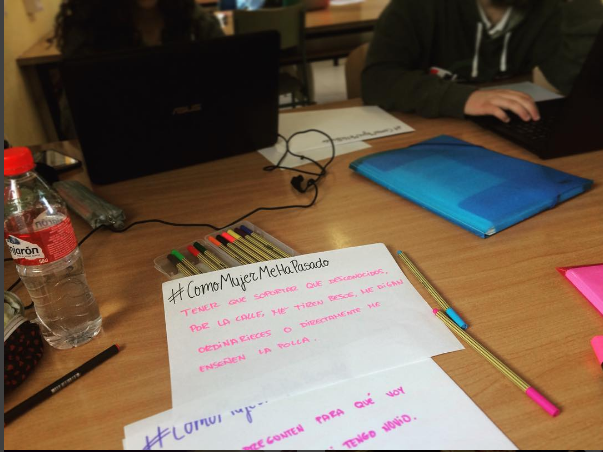 ASUS
#ComoMujerMeHaPasado
TENER QUE SOPORTAR QUE DESCONOCIDOS,
POR LA CALLE, ME TIREN BESOS, ME DIGAN
ORDINARIECES O DIRECTAMENTE ME
ENSEÑEN LA POLLA.
#Como
PARA QUÉ VOY
TENGO NOVIO.